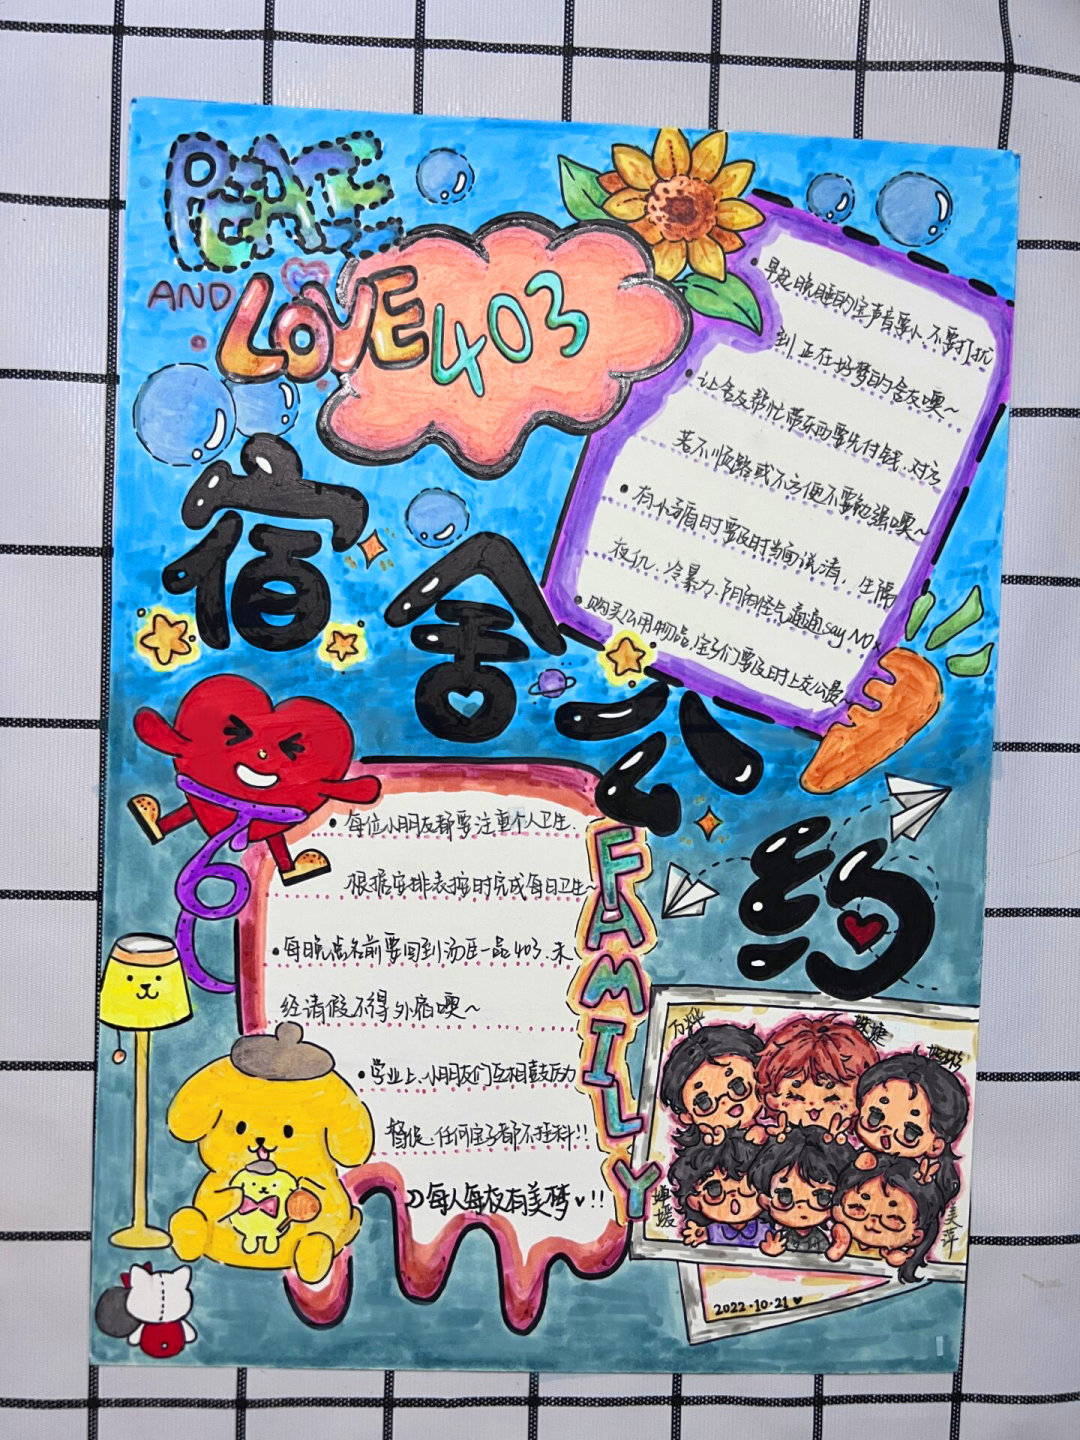 PEACE
AND LOVE 403
宿舍公约
早起晚睡的宝声音要小,不要打扰
到正在好梦的舍友噢~
让舍友帮忙带东西要先付钱,对方
若不顺路或不方便不要勉强噢~
有小矛盾时要及时当面说清,生隔
夜仇、冷暴力、阴阳怪气通通say NO×
购买公用物品,宝子们要及时上交公费~
6
每位小朋友都要注重个人卫生,
根据安排表按时完成每日卫生~
每晚点名前要回到汤臣一品403,未
经请假不得外宿噢~
学业上,小朋友们互相鼓励
督促,任何宝子都不挂科!!
每人每夜有美梦!!
FAMILY
婵媛
美萍
2022.10.21